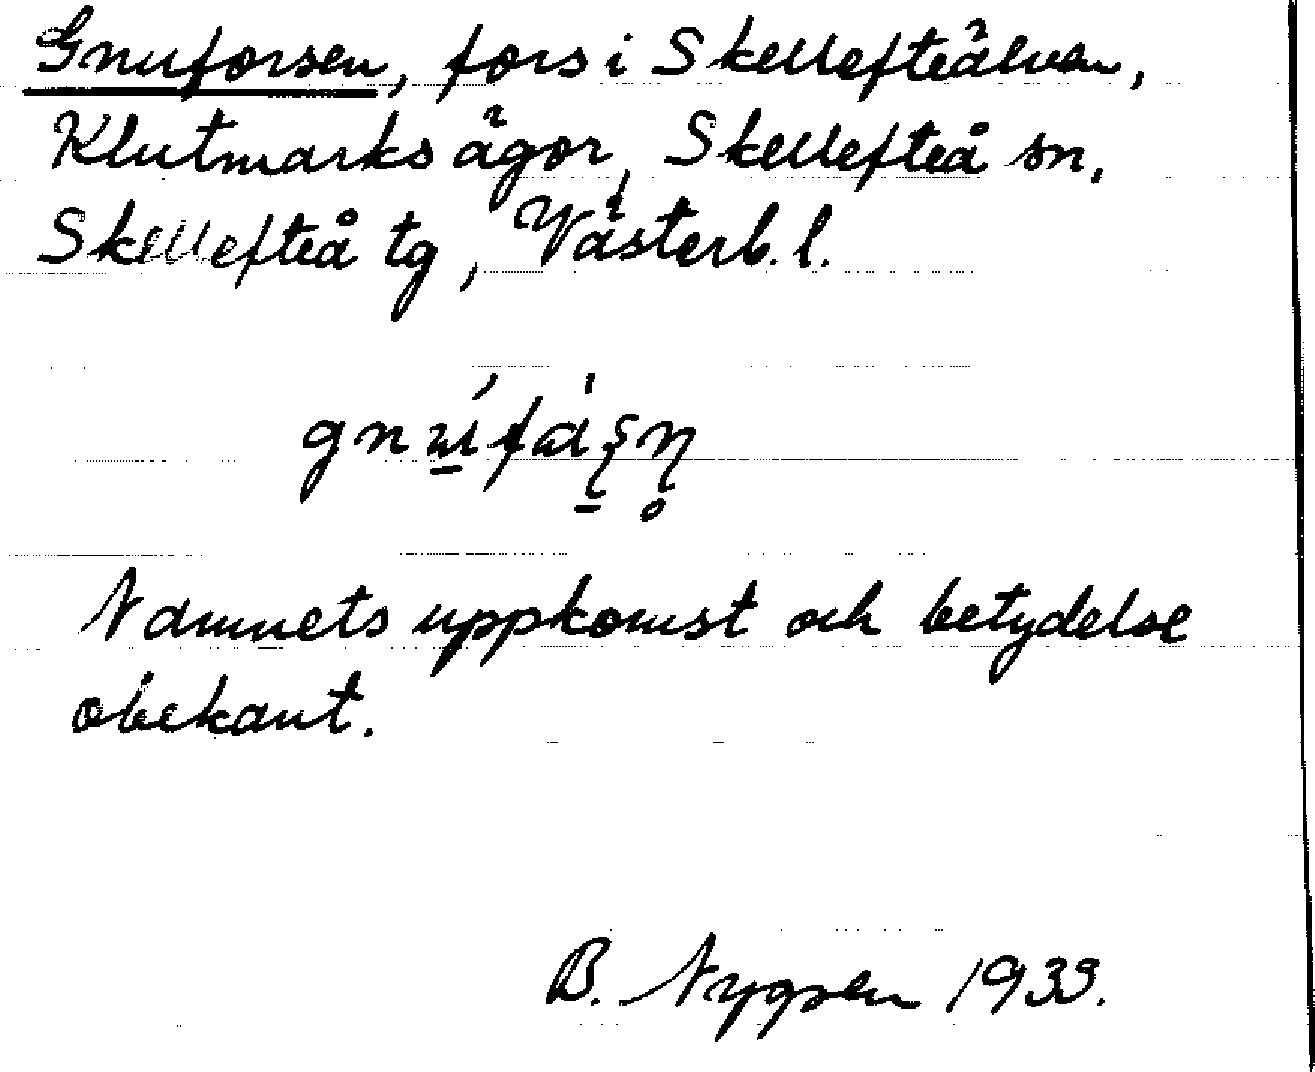 Gnuforsen, fors i Skellefteälven,
Klutmarks ägor, Skellefteå sn,
Skellefteå tg, Västerb. l.
Namnets uppkomst och betydelse
obekant.
B. Nygren 1933.